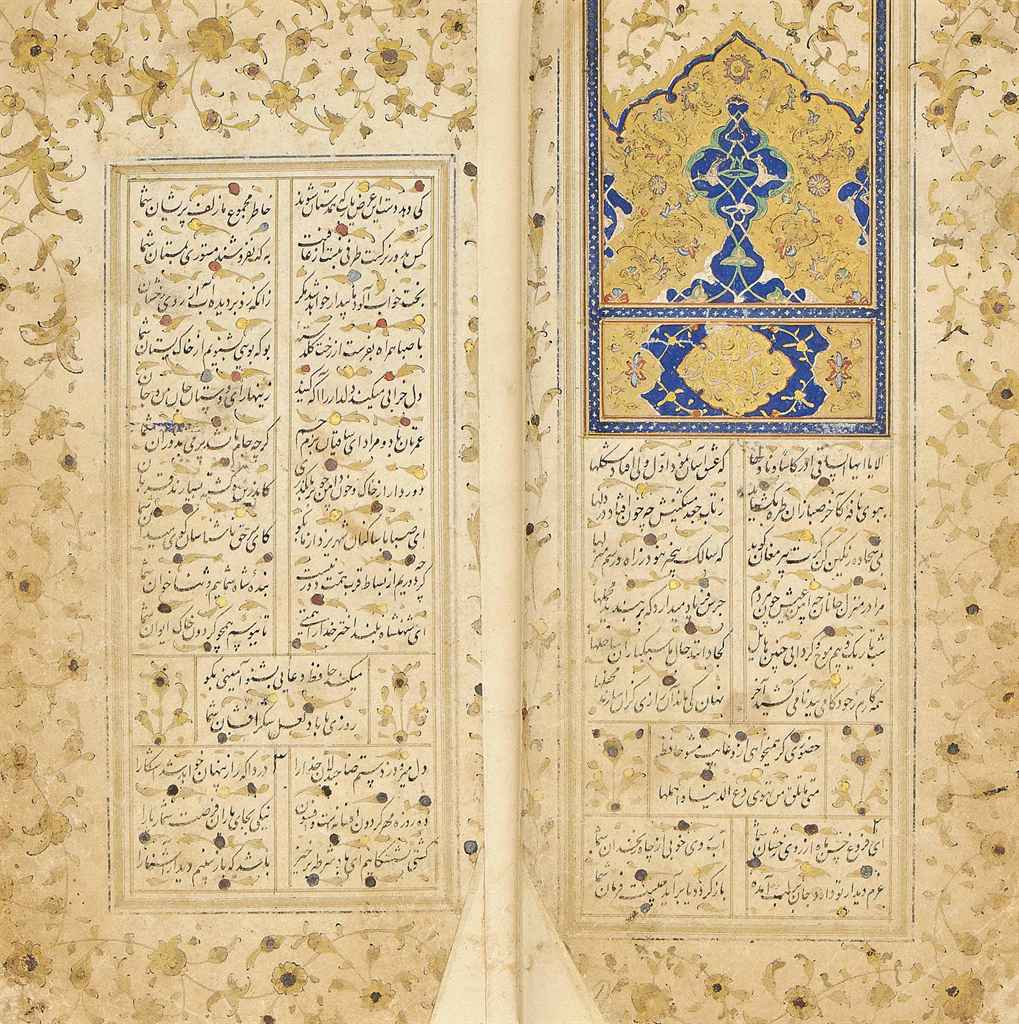 الا یا ایها الساقی ادر کاسا و ناولها که عشق آسان نمود اول ولی افتاد مشکلها
ببوی نافه کاخر صبا زان طره بگشاید ز تاب جعد مشکینش چه خون افتاد در دلها
بمی سجاده رنگین کن گرت پیر مغان گوید که سالک بیخبر نبود ز راه و رسم منزلها
مرا در منزل جانان چه امن عیش چون هر دم جرس فریاد میدارد که بربندید محملها
شب تاریک و بیم موج و گردابی چنین هایل کجا دانند حال ما سبکباران ساحلها
همه کارم ز خود کامی ببدنامی کشید آخر نهان کی ماند آن رازی کزان سازند محفلها
حضوری گر همیخواهی ازو غایب مشو حافظ
متی ما تلق من تهوی دع الدنیا و اهملها
۲
ای فروغ حسن ماه از روی رخشان شما آب روی خوبی از چاه زنخدان شما
عزم دیدار تو دارد جان بر لب آمده باز گردد یا برآید چیست فرمان شما
کی دهد دست این غرض یارب که همدستان شوند خاطر مجموع ما زلف پریشان شما
کس بدور نرگست طرفی نبست از عافیت به که نفروشند مستوری بمستان شما
بخت خواب آلود ما بیدار خواهد شد مگر زانکه زد بر دیده آب از روی رخشان شما
با صبا همراه بفرست از رخت گلدسته بو که بویی بشنویم از خاک بستان شما
دل خرابی میکند دلدار را آگه کنید زینهار ای دوستان جان من و جان شما
عمرتان باد و مراد ای ساقیان بزم جم گرچه جام ما نشد پر می بدوران شما
دور دار از خاک و خون دامن چو بر ما بگذری کاندرین ره کشته بسیارند قربان شما
ای صبا با ساکنان شهر یزد از ما بگو کای سر حق ناشناسان گوی میدان شما
گرچه دوریم از بساط قرب همت دور نیست بنده شاه شماییم و ثناخوان شما
ای شهنشاه بلند اختر خدا را همتی تا ببوسم همچو گردون خاک ایوان شما
میکند حافظ دعایی بشنو آمینی بگو
روزی ما باد لعل شکر افشان شما
۳
دل میرود ز دستم صاحبدلان خدا را دردا که راز پنهان خواهد شد آشکارا
ده روزه مهر گردون افسانه است و افسون نیکی بجای یاران فرصت شمار یارا
کشتی شکستگانیم ای باد شرطه برخیز باشد که باز بینیم دیدار آشنا را